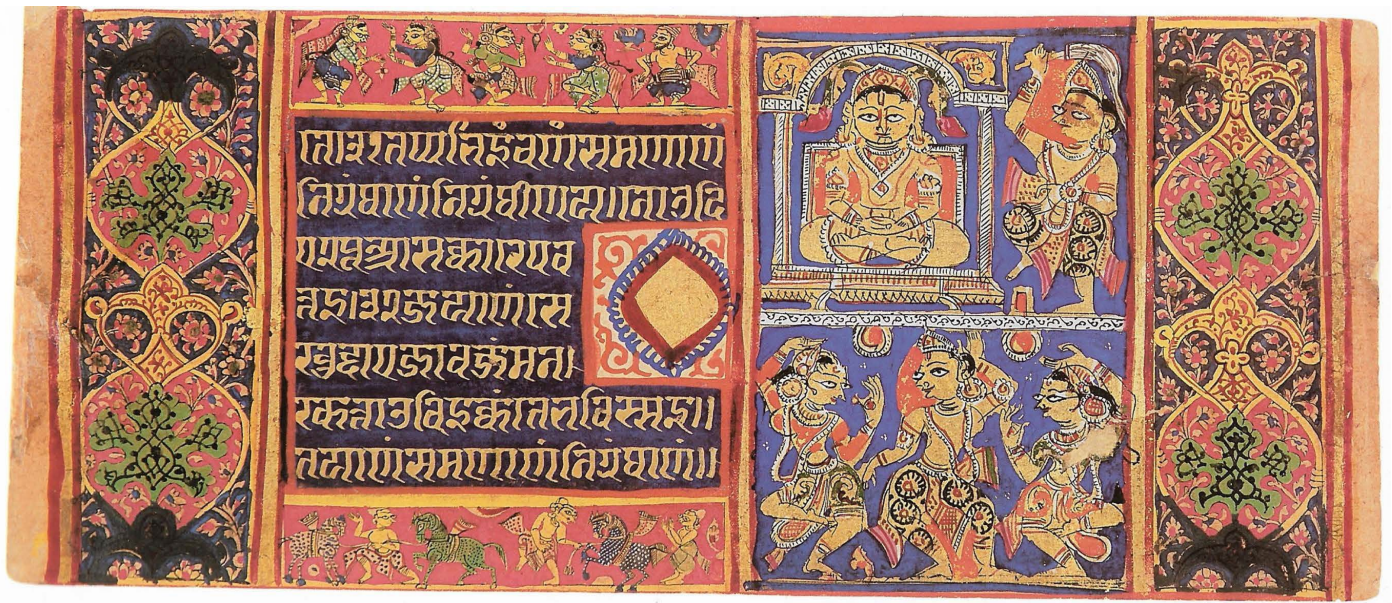 तप्पतिइंचणंसमणाणं
निग्रंथाणंनिग्रंथीणय॥नोउदि
पूआसक्कारेपव
त्तइ जयाणंसे
खुद्दाएजावजम्मन
रकत्ताउविइक्कंतेतविस्सइ॥
तयाणंसमणाणंनिग्रंथाणं॥